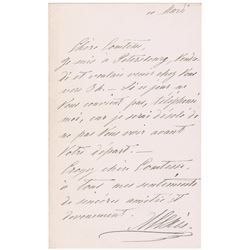 11 Mardi
Chère Comtesse,
Je suis à Pétersbourg, 
di et voulais venir chez vous
vers 5h. — Si ce jour ne
vous convient pas, téléphonez
moi, car je serai désolé de
ne pas vous voir avant
votre départ. —
Croyez, chère Comtesse,
à tous mes sentiments
de sincère amitié et
dévouement.